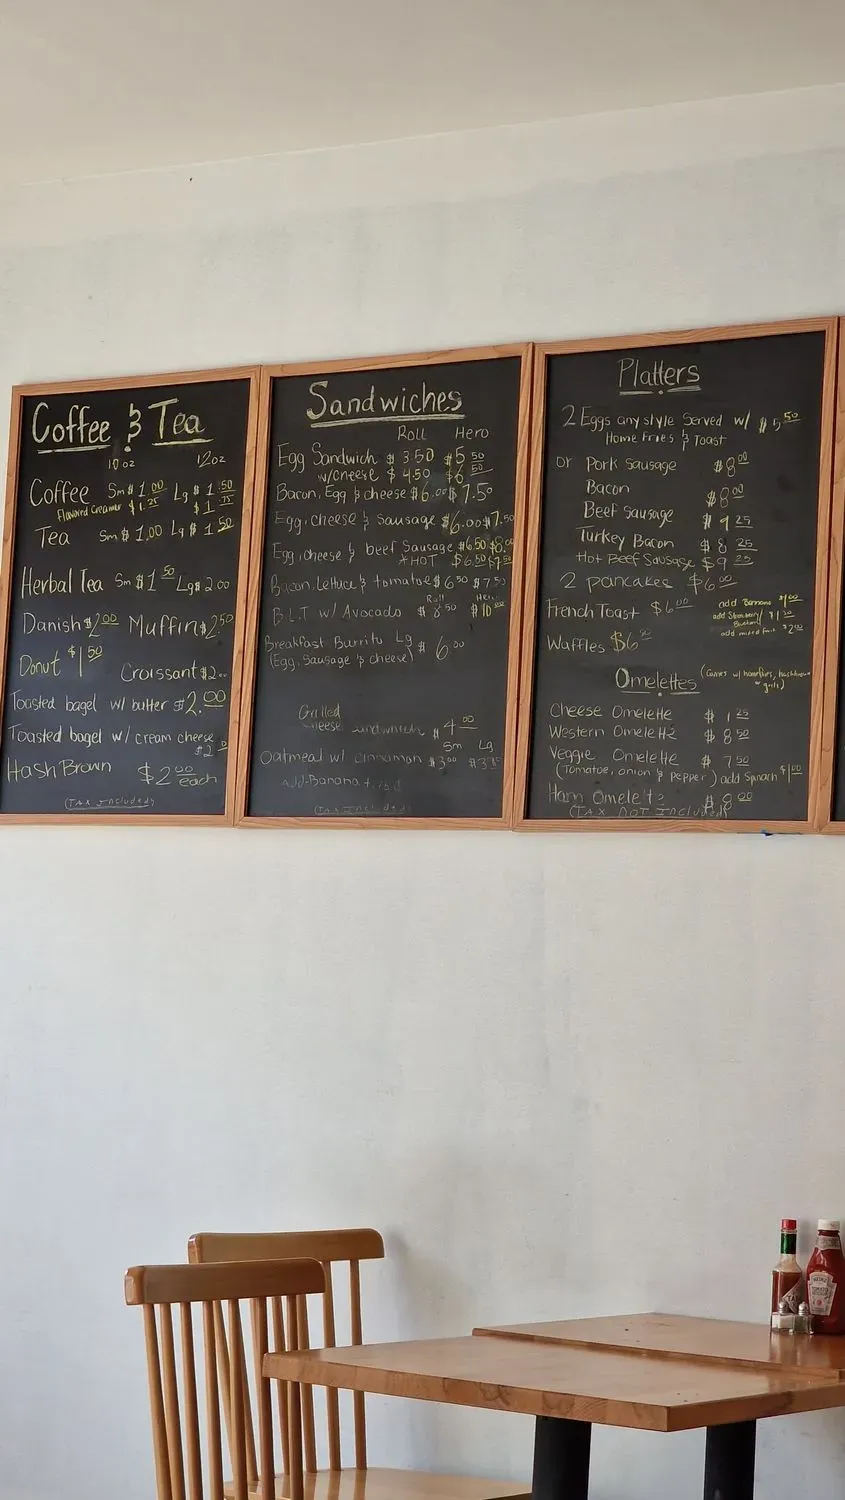 Coffee & Tea
10 oz 12oz
Coffee Sm $1.00 Lg $1.50
Flavored Creamer $1.25 $1.75
Tea Sm $1.00 Lg $1.50
Herbal Tea Sm $1.50 Lg $2.00
Danish $2.00 Muffin $2.50
Donut $1.50
Croissant $2.
Toasted bagel w/ butter $2.00
Toasted bagel w/ cream cheese
$2
Hash Brown $2.00 each
(TAX Included)
Sandwiches
Roll Hero
Egg Sandwich $3.50 $5.50
w/cheese $4.50 $6.50
Bacon, Egg & cheese $6.00 $7.50
Egg, cheese & Sausage $6.00 $7.50
Egg, cheese & beef Sausage $6.50 $8.00
*HOT $6.50
Bacon, Lettuce & tomatoe $6.50 $7.50
Roll
B.L.T w/ Avocado $8.50 $10
Breakfast Burrito Lg $6.00
(Egg, Sausage & cheese)
Grilled
cheese sandwich $4.00
Sm Lg
Oatmeal w/ cinnamon $3.00
add-Banana
(TAX Included)
Platters
2 Eggs any style Served w/ $5.50
Home Fries & Toast
or Pork Sausage $8.00
Bacon $8.00
Beef Sausage $9.25
Turkey Bacon $8.25
Hot Beef Sausage $9.25
2 pancakes $6.00
French Toast $6.00 add Banana $1.00
add Strawberry/ $1.50
Blueberry
add mixed fruit $2.00
Waffles $6
Omelettes (Comes w/ homefries, hashbrown
or grits)
Cheese Omelette $ .25
Western Omelette $8.50
Veggie Omelette $7.50
(Tomatoe, onion & pepper) add Spinach $1.00
Ham Omelette $8.00
(TAX NOT Included)
HEINZ
TOMATO
KETCHUP